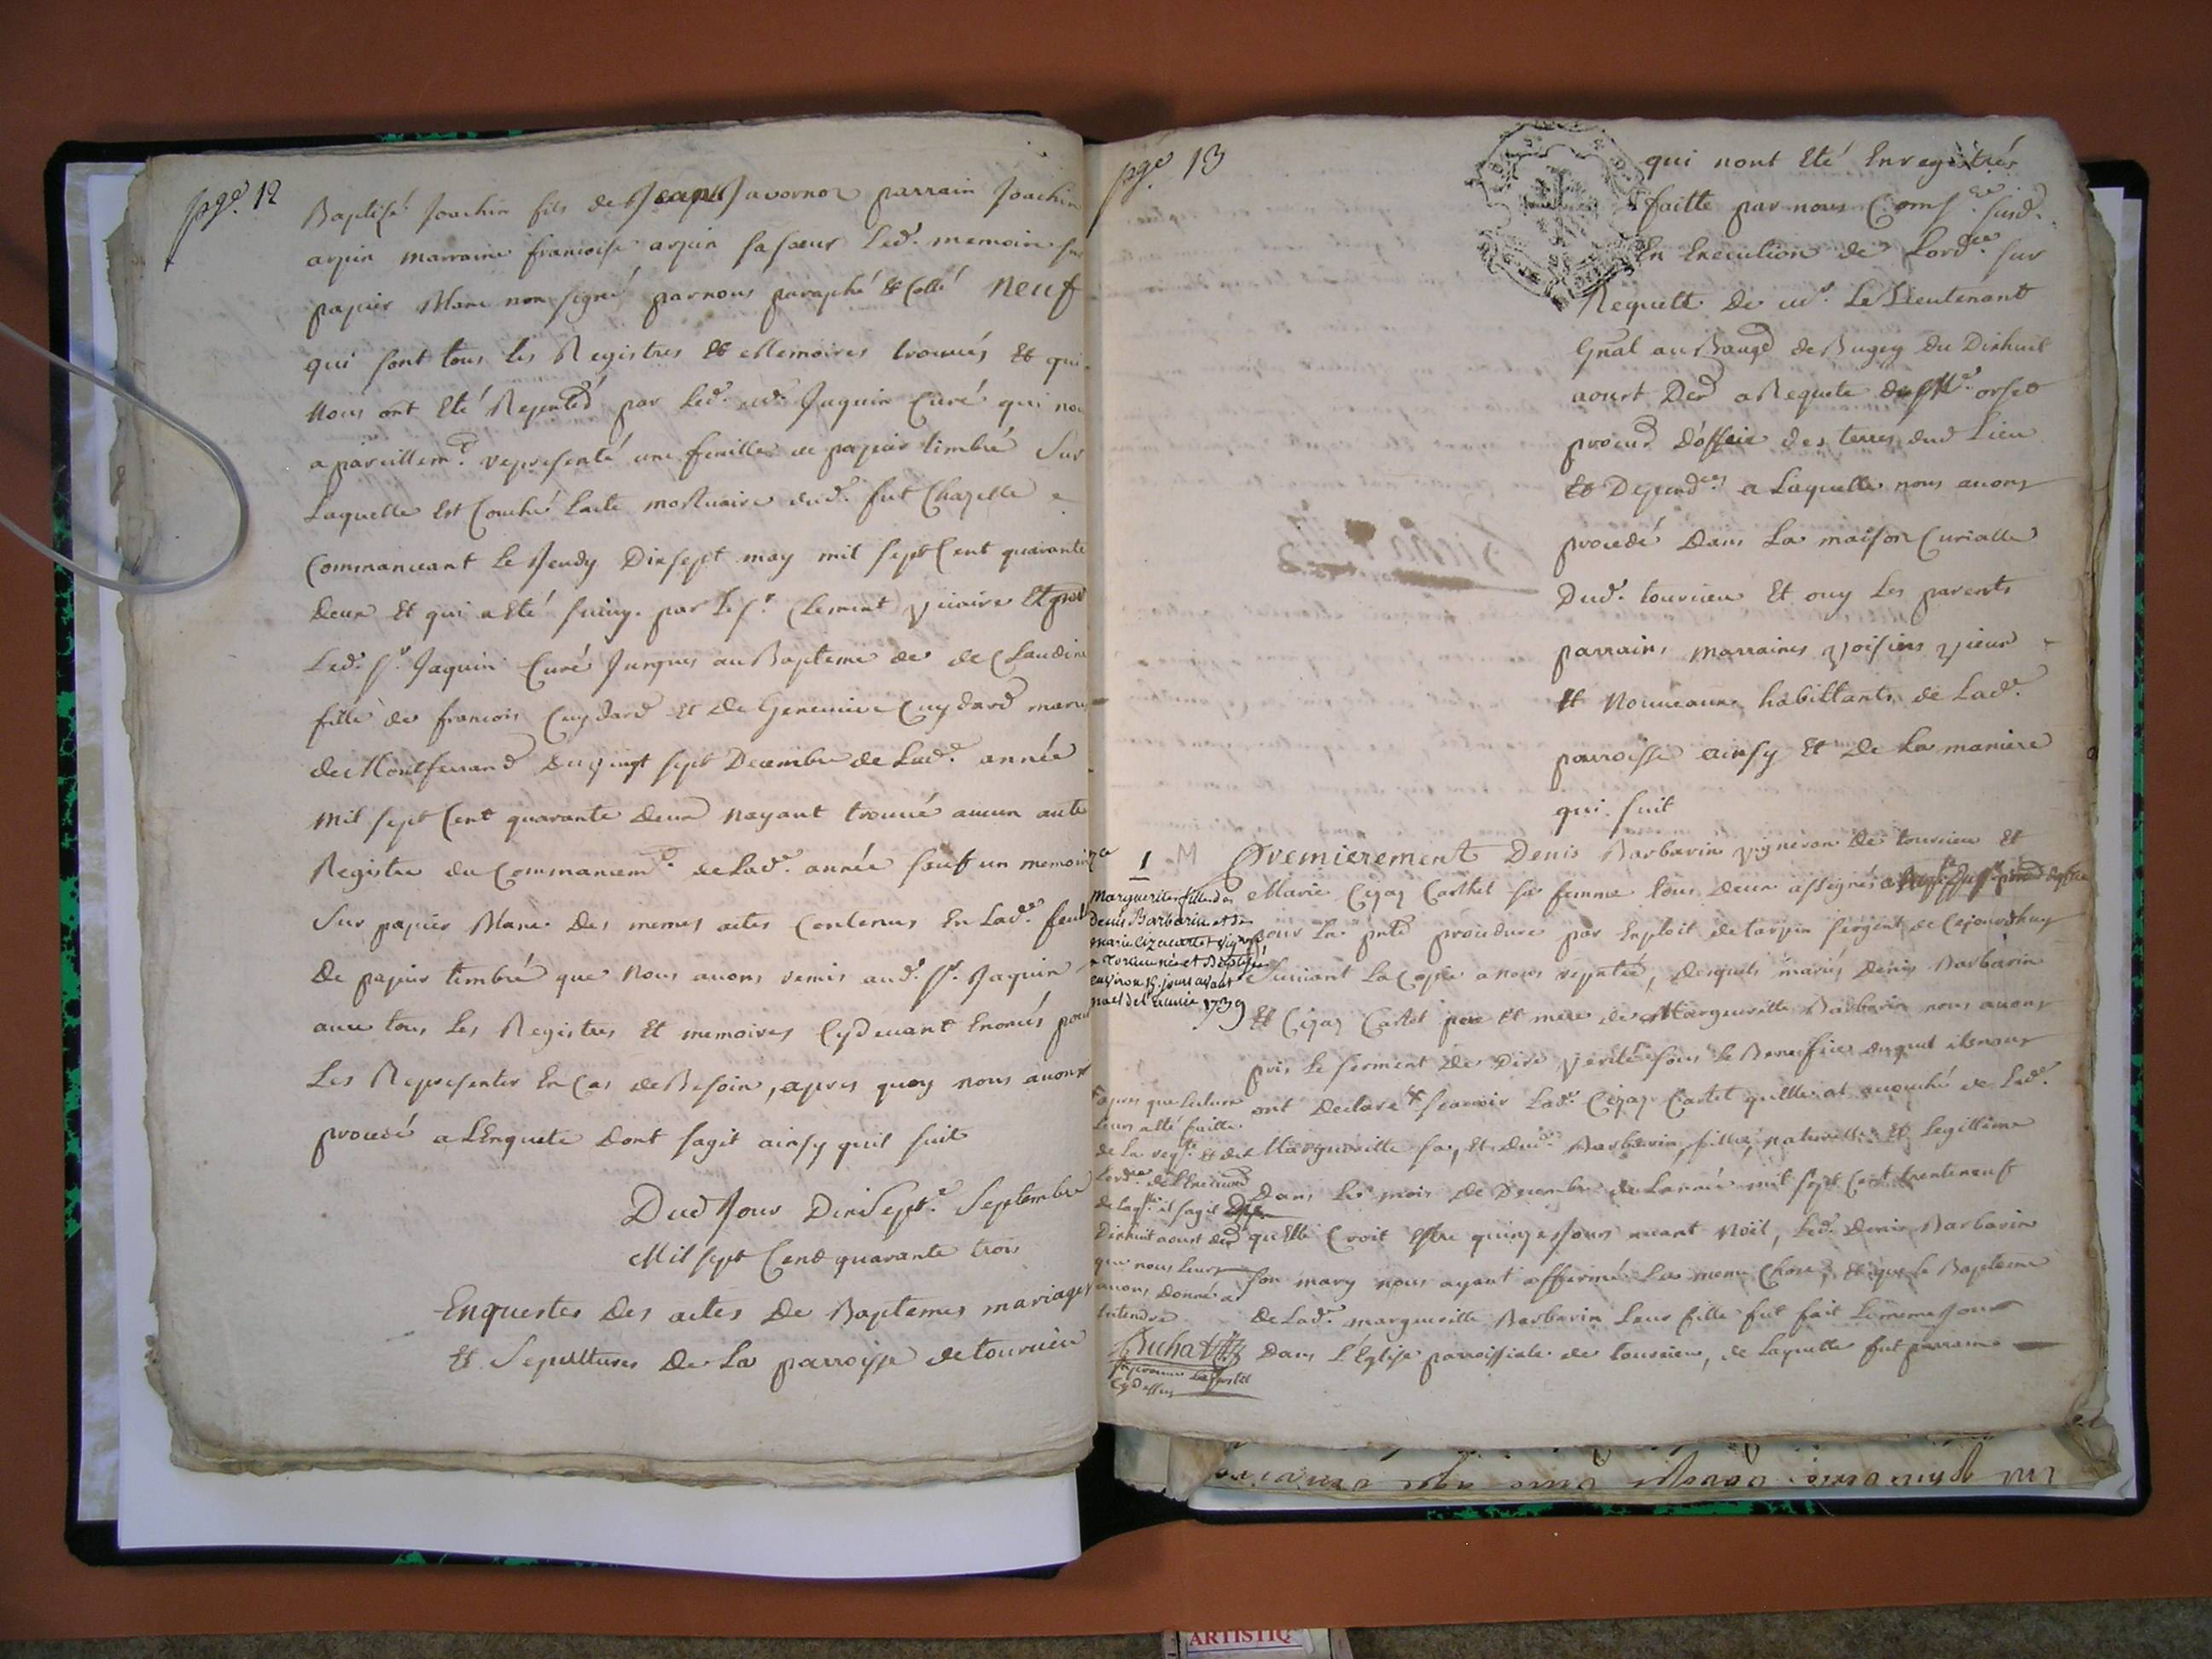 page. 12
Baptisé Joachin fils de Jean Javornoz parrain Joachin
arpin marraine francoise arpin sa sœur Led. memoire sur
papier blanc non signé par nous paraphé et Cotté Neuf
qui sont tous les Registres et Memoires trouvés et qui
Nous ont Eté Repntés par Led. Jaquin Curé qui nou
a pareillemt. representé une feuille de papier timbré Sur
Laquelle Est Couché Lacte mortuaire dud. fut Chapelle
Commancant le Jeudy Dixsept may mil sept Cent quarante
deux et qui a Eté suivy par le sr. Clement vicaire Et par
Led. sr. Jaquin Curé Jusques au Bapteme de de Claudine
fille de francois Cuydard et de Genevieve Cuydard
de Montferrand du vingt sept Decembre de Lad. année
mil sept Cent quarante deux nayant trouvé aucun autre
Registre du Commancemt. de Lad. année sauf un memoire
Sur papier blanc des memes actes Contenus En Lad. feuille
De papier timbré que Nous avons remis aud. sr. Jaquin
avec tous Les Registres Et memoires Cydevant Enoncés pour
Les Representer En Cas de Besoin, apres quoy nous avons
procedé a LEnquete Dont sagit ainsy quil suit
Dud Jour Dixsept. Septembre
Mil sept Cent quarante trois
Enquestes Des actes De Baptemes mariages
Et Sepultures De La parroisse de tourcieu
page. 13
qui nont Eté Enregistrés
faitte par nous Coms. susd.
En Execution de Lord. sur
Requette De Le Lieutenant
Gnal au Bauge de Bugey du Dixhuit
aoust Der a Requete de orset
procur Doffice des terres dud Lieu
et Dependces a Laquelle nous avons
procedé Dans La maison Curialle
Dud. tourcieu Et ouy Les parents
parrains marraines voisins vieux
Et Nouveaux habittants de Lad.
parroisse ainsy Et De La maniere
qui suit
1
M
Premierement Denis Barbarin vigneron De tourcieu et
Marie Cizay Carthet sa femme tous Deux assignés
pour La pnte procedure par Exploit de tarpin sergent de Cejourdhuy
Suivant La Copie a nous repntée, desquels mariés Denis Barbarin
Et Cizay Cartet pere Et mere de Marguerite Barbarin nous avons
pris Le serment De Dire verité sous Le Benefice duquel ils nous
ont Declaré scavoir Lad. Cizay Cartet quElle at acouché de Lad.
Marguerite sa, Et Dud. Barbarin, fille naturelle Et Legittime
Dans Le mois De Decembre de Lannée mil sept Cent trenteneuf
quElle Croit Estre quinze Jours avant Noël, Led. Denis Barbarin
son mary nous ayant affirmé La meme Chose, Et que le Bapteme
De Lad. marguerite Barbarin Leur fille fut fait Le meme Jour
Dans L'Eglise parroissiale de tourcieu, de Laquelle fut parrain
Marguerite fille de
Denis Barbarin et de
marie Cizacartet
a Tourcieu née et Baptisée
environ 15. jours avant
noel de l'année 1739
apres que Lecture
Leurs a Eté faitte
de La reqte. et de
Lord. de LEnregmt
de Laqlle. il sagit
Dixhuit aoust der
que nous Leurs
avons Donné a
Entendre
Buchat